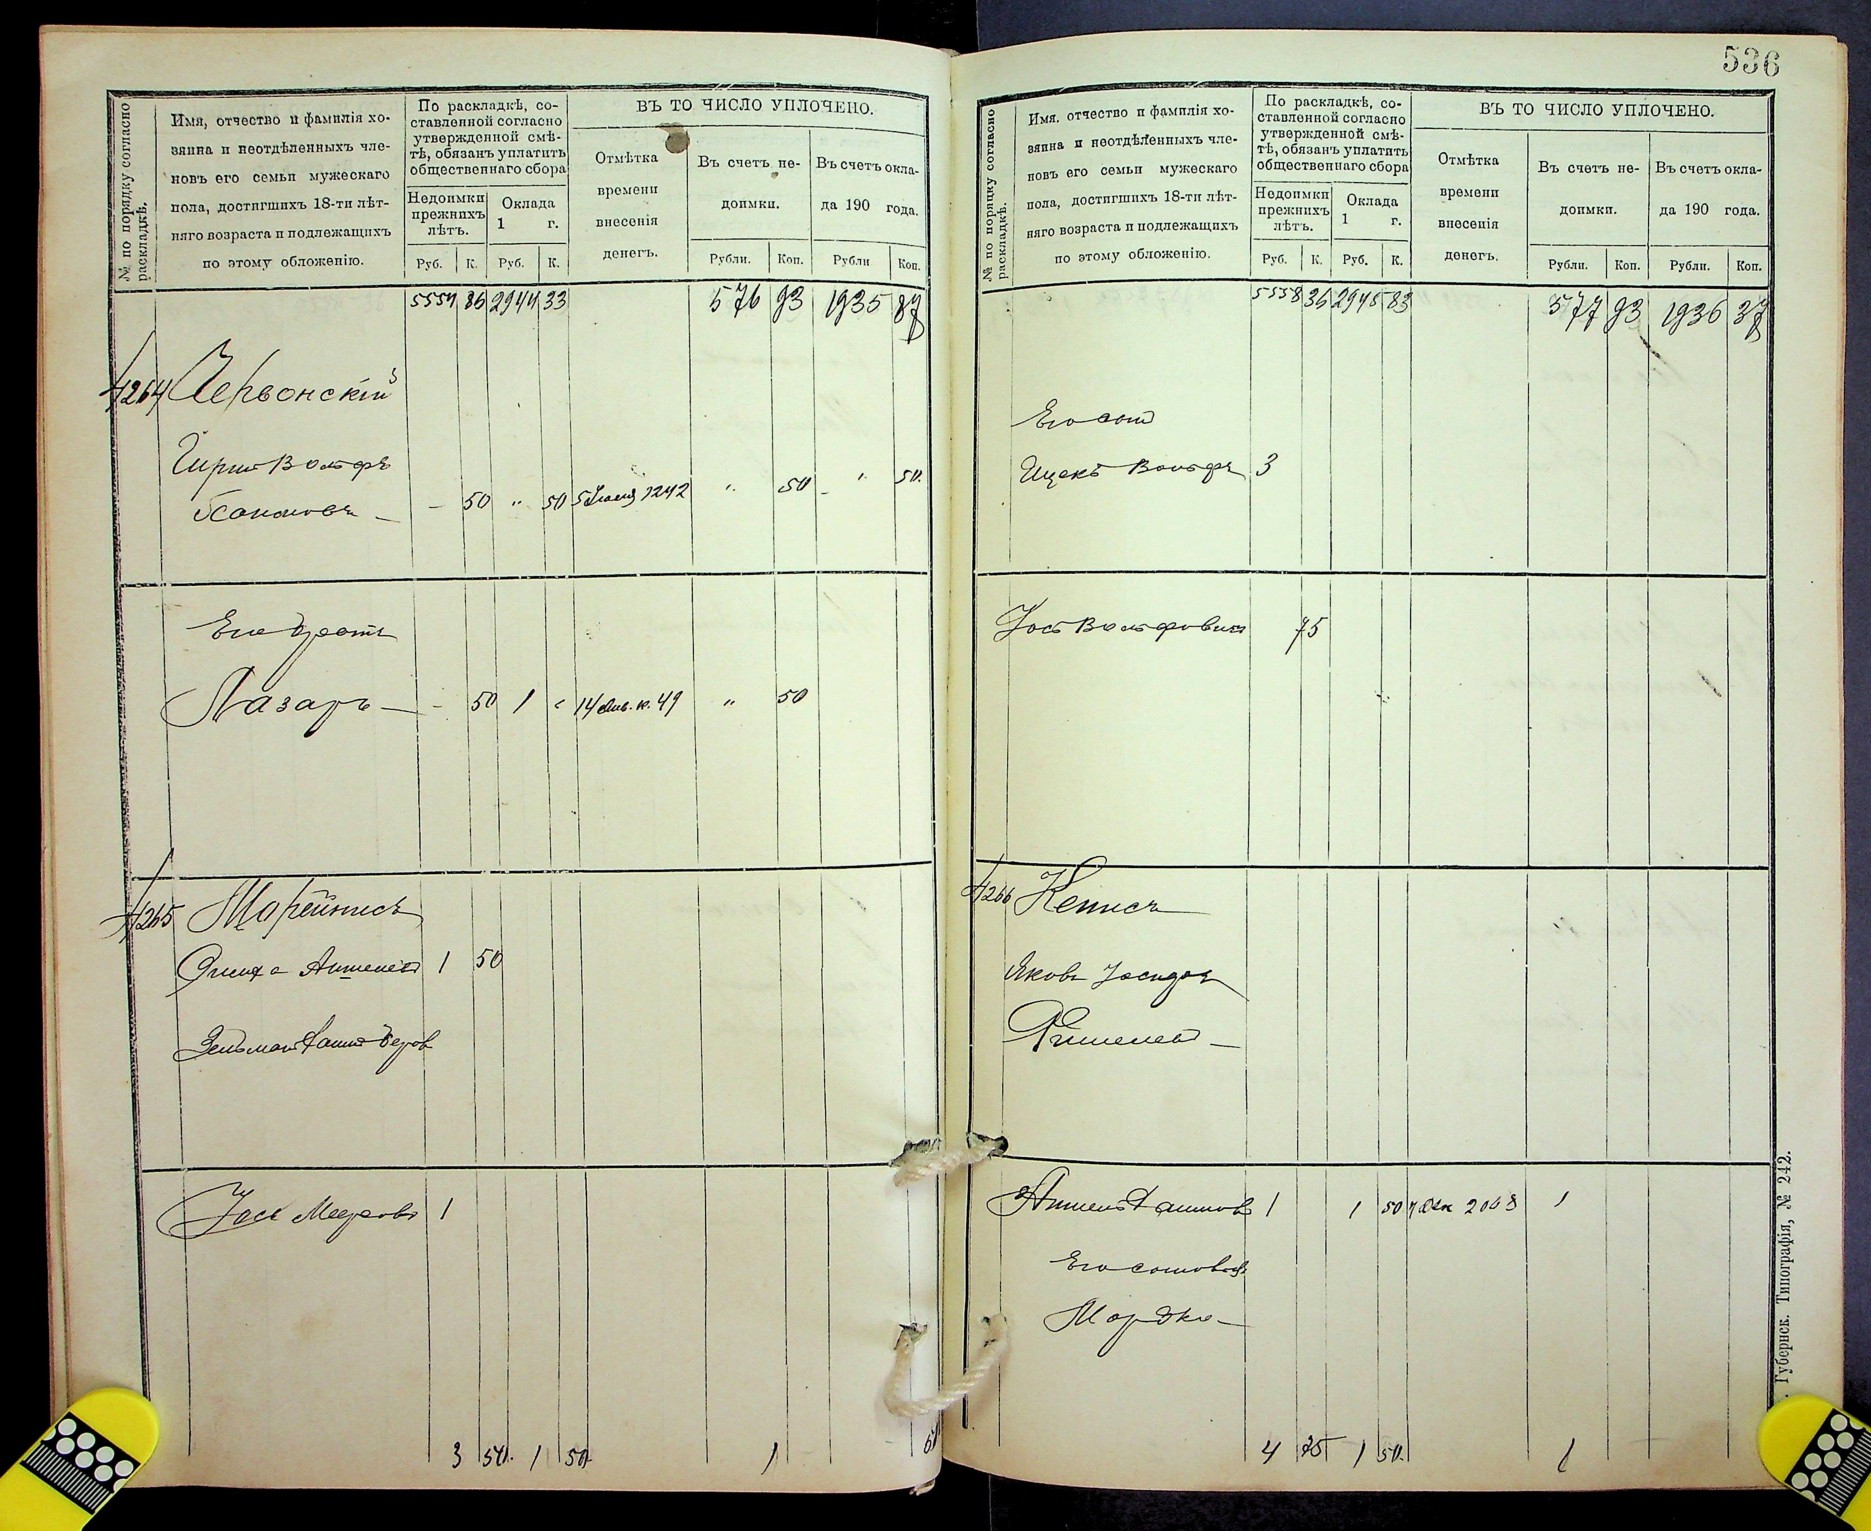 536
№ по порядку согласно раскладкѣ.
Имя, отчество и фамилія хо-
зяина и неотдѣленныхъ чле-
новъ его семьи мужескаго
пола, достигшихъ 18-ти лѣт-
няго возраста и подлежащихъ
по этому обложенію.
По раскладкѣ, со-
ставленной согласно
утвержденной смѣ-
тѣ, обязанъ уплатить
общественнаго сбора
Недоимки
прежнихъ
лѣтъ.
Оклада
1 г.
Руб. К. Руб. К.
ВЪ ТО ЧИСЛО УПЛОЧЕНО.
Отмѣтка
времени
внесенія
денегъ.
Въ счетъ не-
доимки.
Въ счетъ окла-
да 190 года.
Рубли. Коп. Рубли Коп.
5554 86 2944 33 576 93 1935 87
1264 Червонскій
Гирш Вольфъ
50 " 50 1242 " 50 " 50.
Его братъ
Лазарь — 50 1 " 14 Янв. к. 49 " 50
1265 Марейнисъ
1 50
Зельман
Іось Мееровъ 1
3 50. 1 50 1
№ по порядку согласно раскладкѣ.
Имя. отчество и фамилія хо-
зяина и неотдѣленныхъ чле-
новъ его семьи мужескаго
пола, достигшихъ 18-ти лѣт-
няго возраста и подлежащихъ
по этому обложенію.
По раскладкѣ, со-
ставленной согласно
утвержденной смѣ-
тѣ, обязанъ уплатить
общественнаго сбора
Недоимки
прежнихъ
лѣтъ.
Оклада
1 г.
Руб. К. Руб. К.
ВЪ ТО ЧИСЛО УПЛОЧЕНО.
Отмѣтка
времени
внесенія
денегъ.
Въ счетъ не-
доимки.
Въ счетъ окла-
да 190 года.
Рубли. Коп. Рубли. Коп.
5558 36 2945 83 577 93 1936 37
Его сын
Ицекъ Вольфъ 3
Іось Вольфовичъ 75
1266 Кеписъ
Яковъ
1 1 50 7 Дек 2003 1
Его сыновья
Мордко —
4 75 1 50. 1
Губернск. Типографія, № 242.